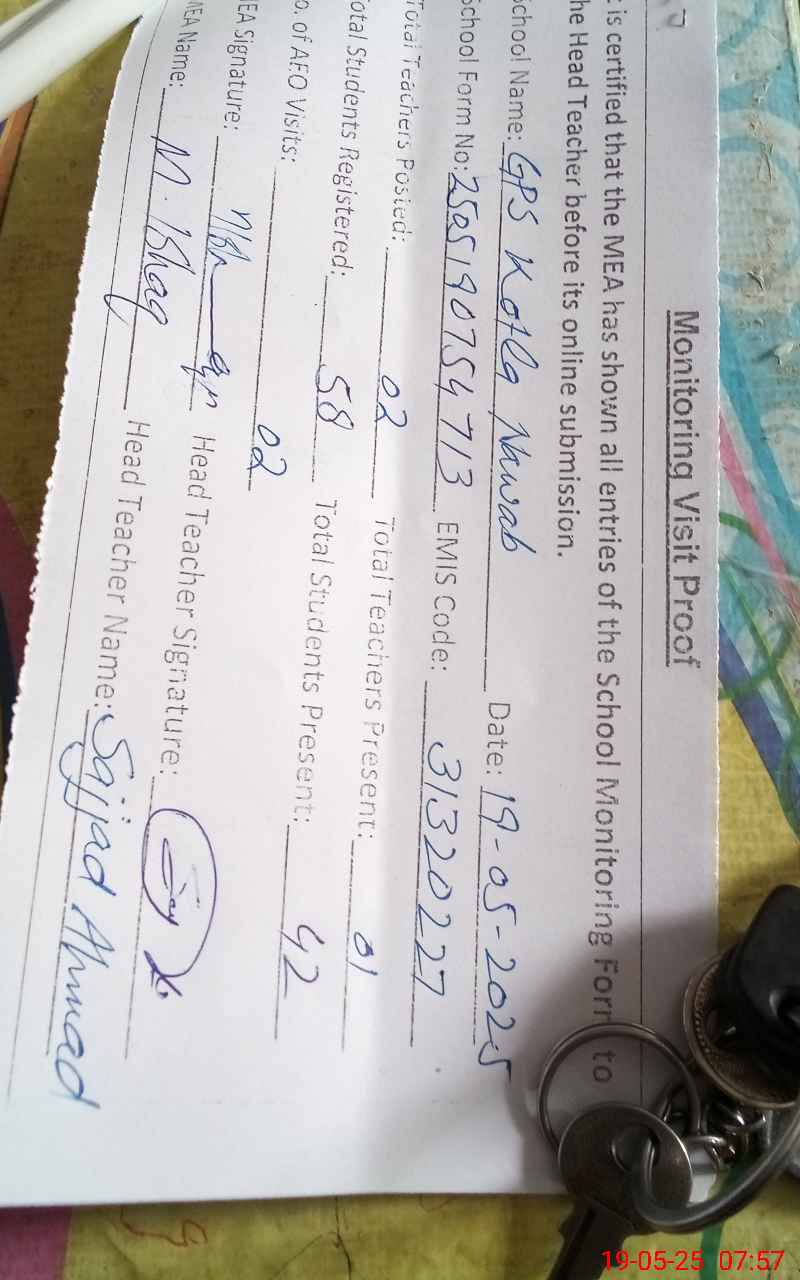 Monitoring Visit Proof
t is certified that the MEA has shown all entries of the School Monitoring Form to
he Head Teacher before its online submission.
School Name: GPS Kotla Nawab Date: 19-05-2025
School Form No: 2505190754713 EMIS Code: 31320227
Total Teachers Posted: 02 Total Teachers Present: 01
otal Students Registered: 58 Total Students Present: 42
o. of AEO Visits: 02
EA Signature: Head Teacher Signature:
MEA Name: M. Ishaq Head Teacher Name: Sajjad Ahmad
19-05-25 07:57